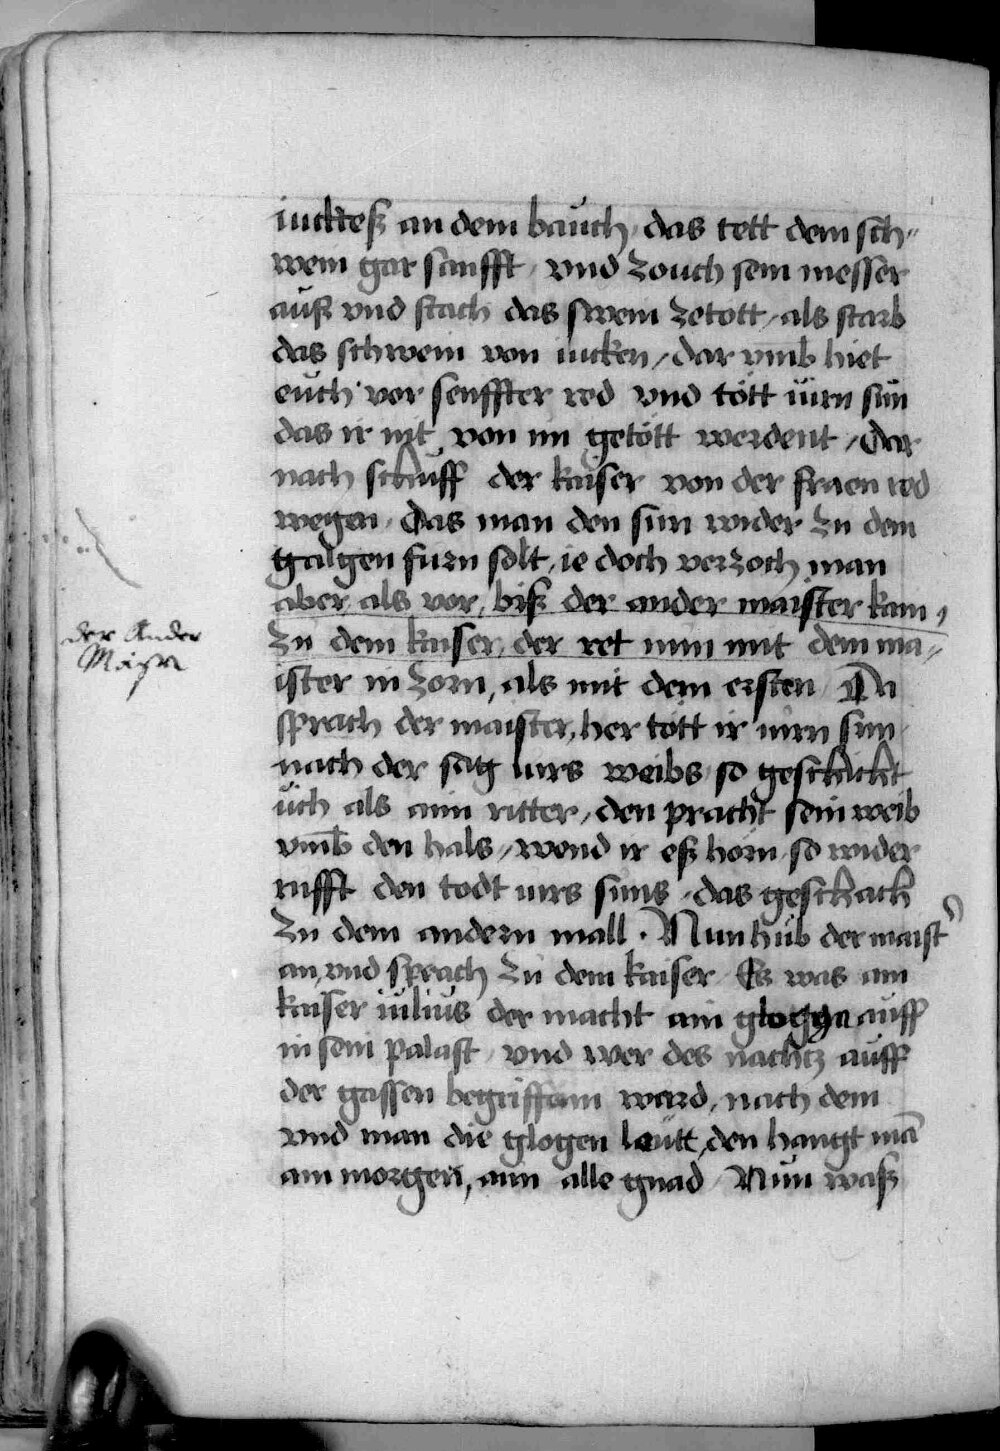 iuckteß an dem bauch, das tett dem sch-
wein gar sanfft, vnd zouch sein messer
auß vnd stach das swein zetott, als starb
das schwein von iucken, dar vmb hiet
euch vor senffter red vnd tött üirn sun
das ir nit von im getött werdent, Dar
nach schuff der kaiser von der fraen red
wegen, das man den sun wider zu dem
galgen furn solt, ie doch verzoch man
aber als vor, biß der ander maister kam,
zu dem kaiser, der ret nun mit dem ma-
der Ander
ister in zorn, als mit dem ersten Da
sprach der maister, her tött ir iurn sun
nach der sag iurs weibs so geschicht
üch als aim ritter, den pracht sein weib
vmb den hals, wend ir eß hörn so wider
rufft den todt iurs suns, das geschach
zu dem andern mall. Nun hub der maist
an, vnd sprach zu dem kaiser Es was ain
kaiser iulius der macht ain glogge auff
in sein palast, vnd wer des nachtz auff
der gassen begriffam ward, nach dem
vnd man die glogen lautt, den hangt mā
am morgen, ain alle gnad Nun waß